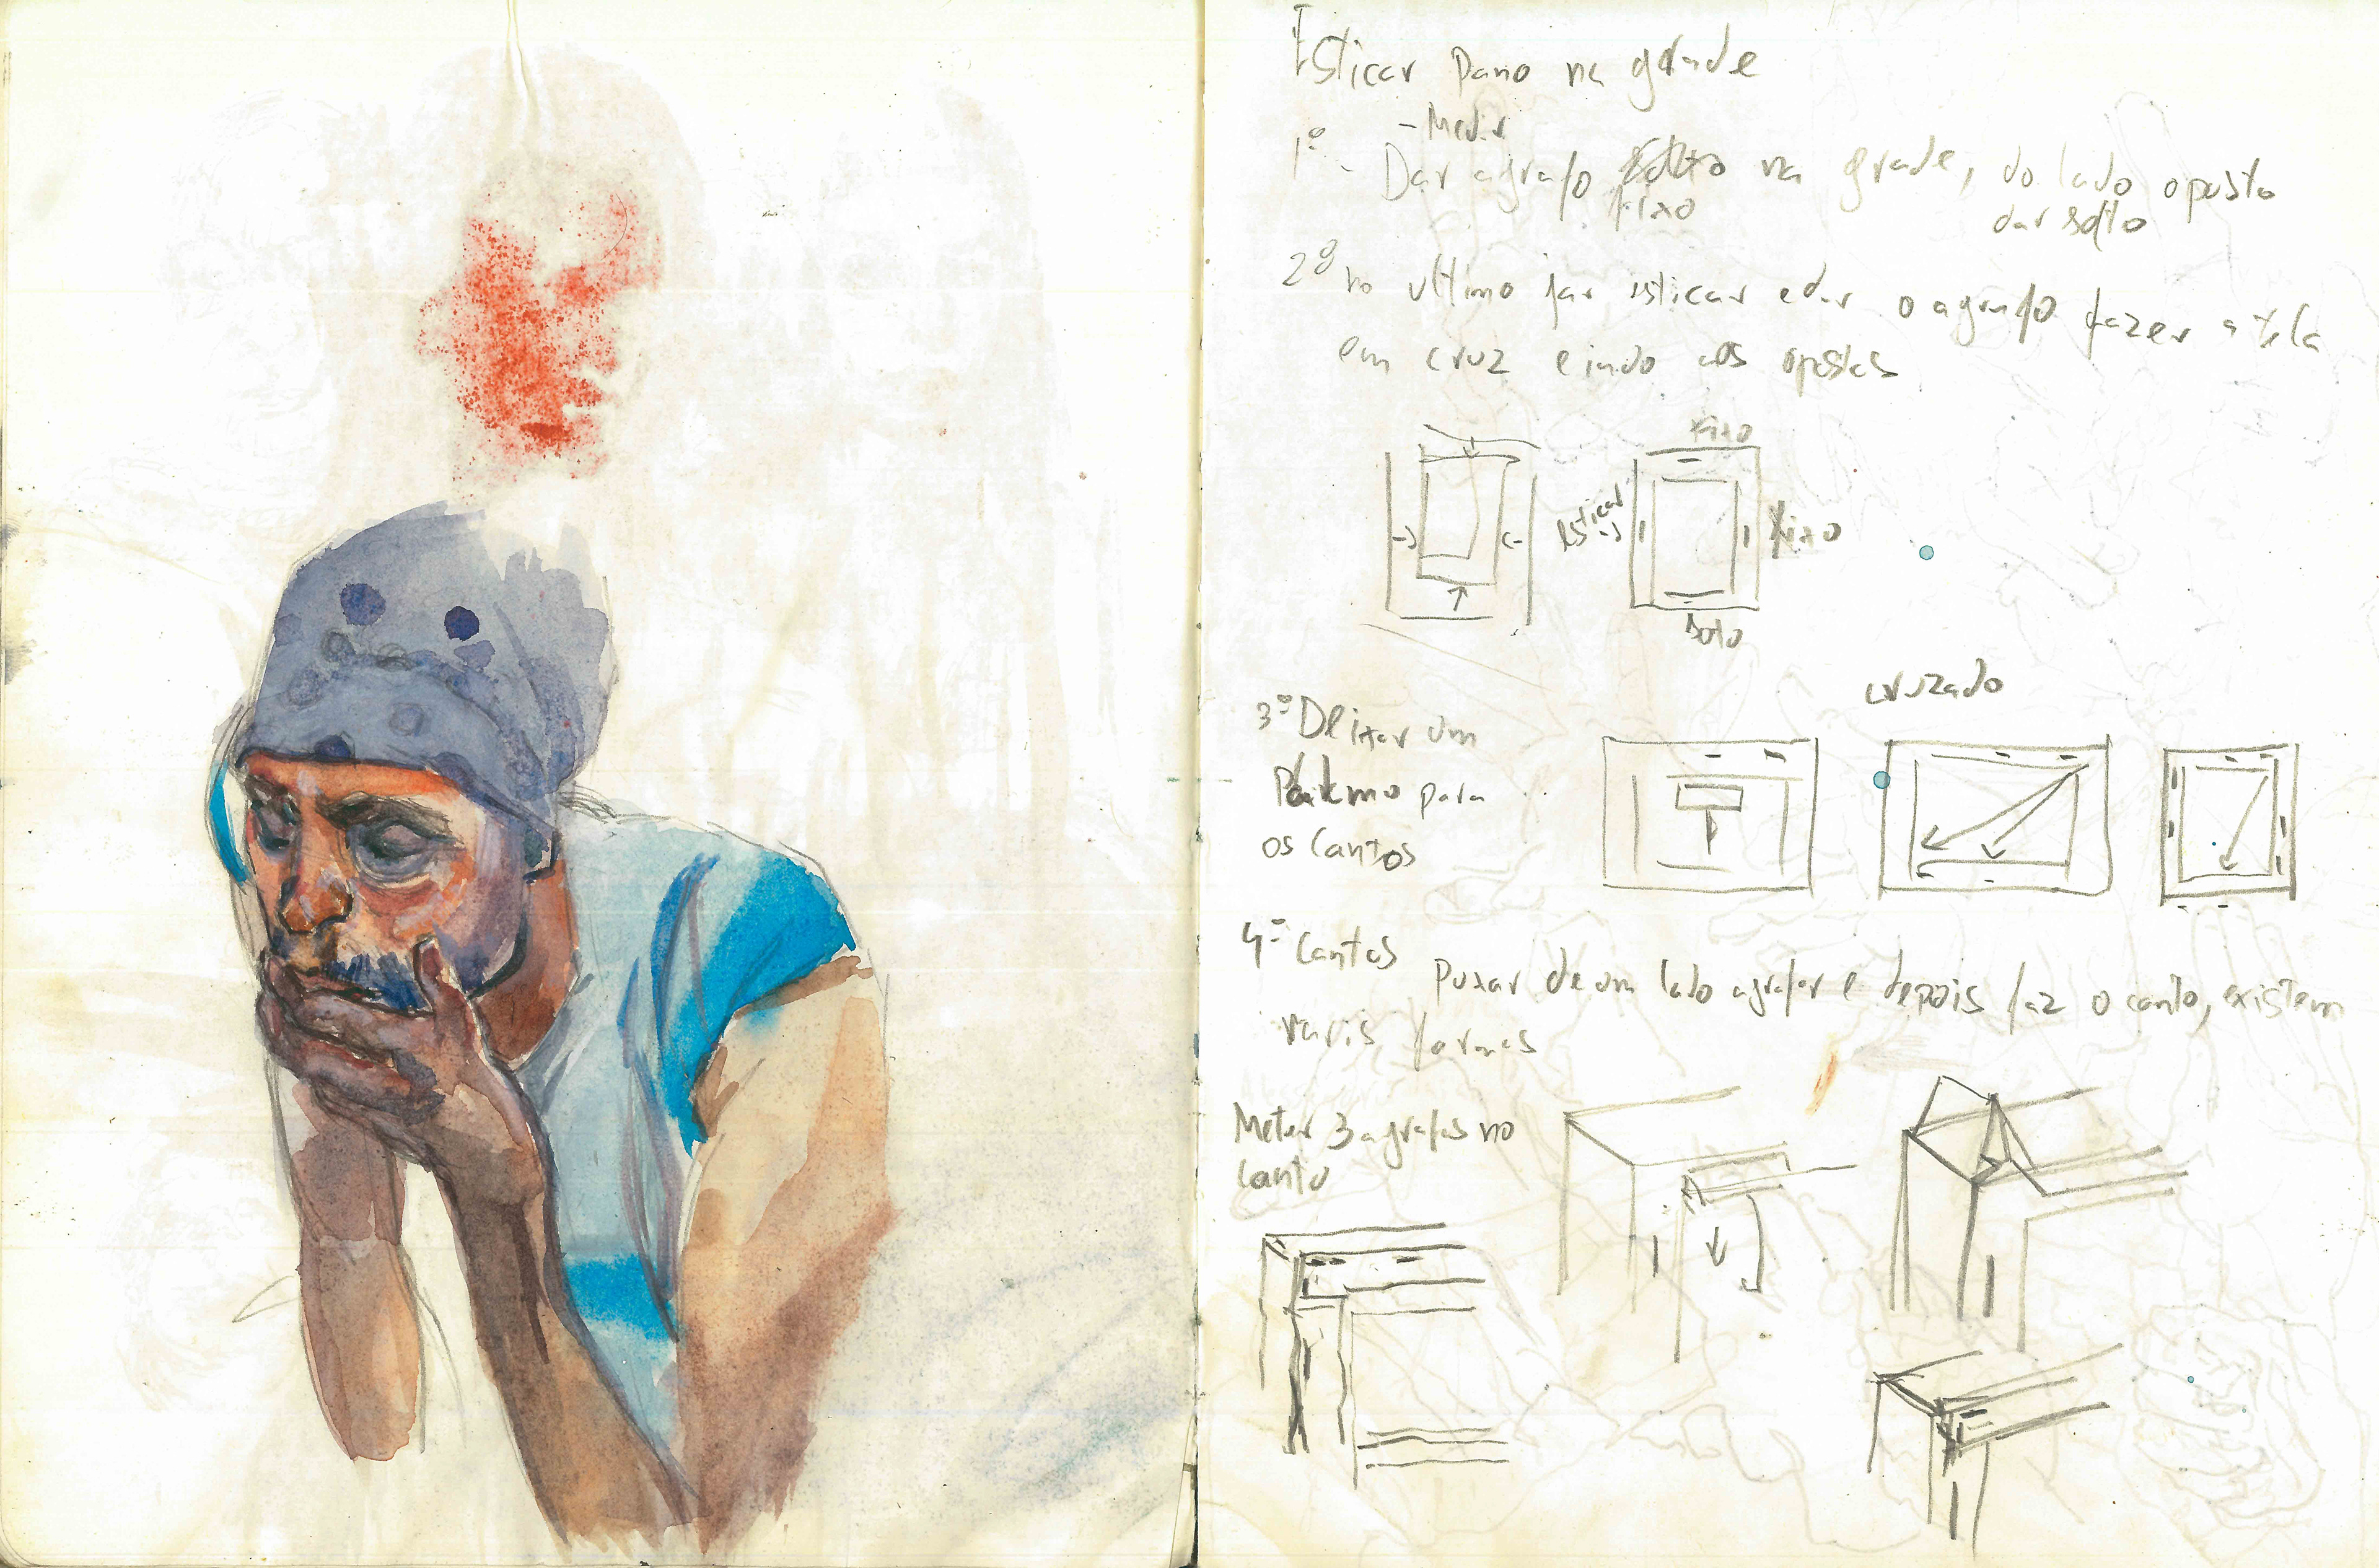 Esticar pano na grade
- Medir
1º - Dar agrafo na grade, do lado oposto
fixo dar solto
2º no ultimo par esticar e dar o agrafo fazer a tela
em cruz e indo aos opostos
fixo
esticar
fixo
solto
cruzado
3º Deixar um
palmo para
os cantos
4º Cantos puxar de um lado agrafar e depois faz o canto, existem
varis formas
Meter 3 agrafos no
canto